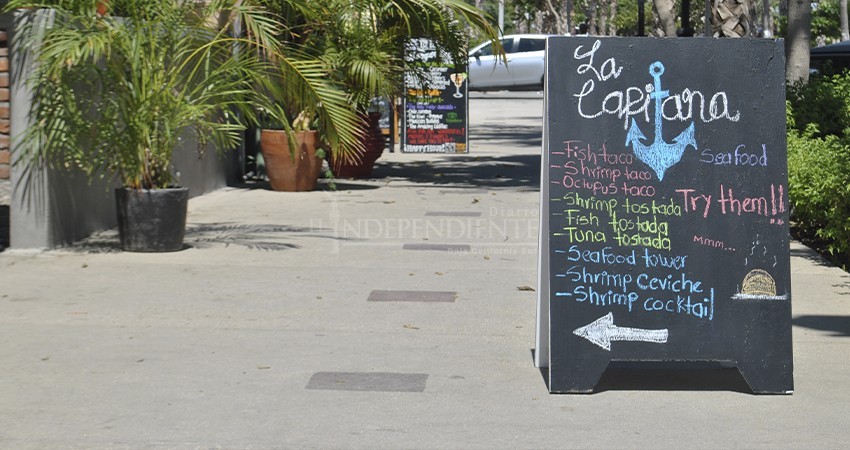 La
Capitana
Seafood
-Fish taco
-Shrimp taco
-Octupus taco
-Shrimp tostada
-Fish tostada
-Tuna tostada
Try them!!
Mmm...
-Seafood tower
-Shrimp Ceviche
-Shrimp cocktail
Diario
El INDEPENDIENTE
Baja California Sur
HAPPY HOUR